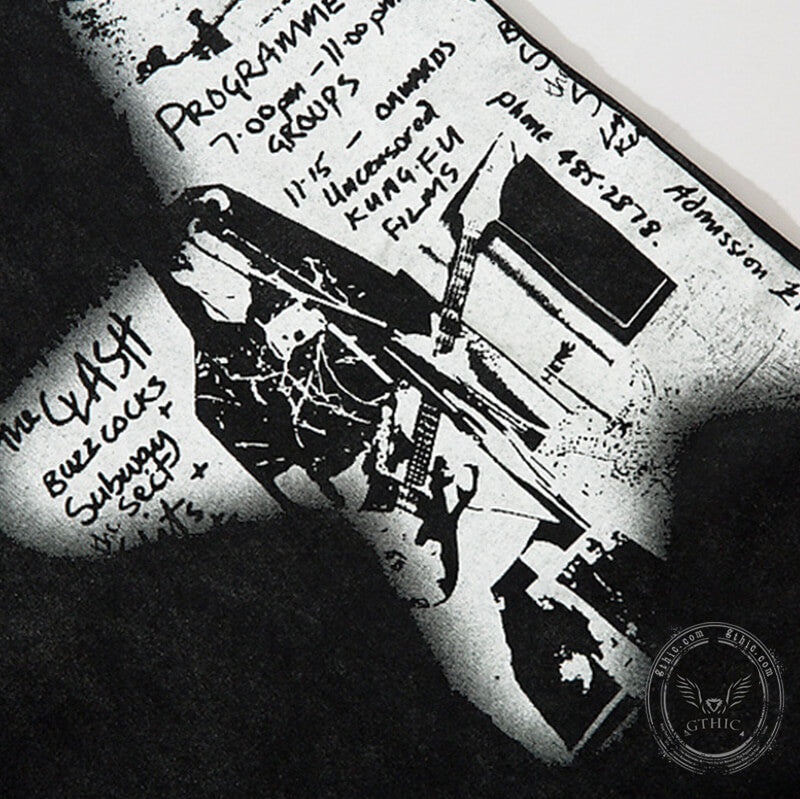 PROGRAMME
7.00pm - 11.00pm
GROUPS
11.15 - ONWARDS
Uncensored
KUNG.FU
FILMS
phone 485.2878.
Admission £1
HERE
The CLASH
BUZZCOCKS
+
Subway
Sect +
the
Slits
gthic.com gthic.com
GTHIC